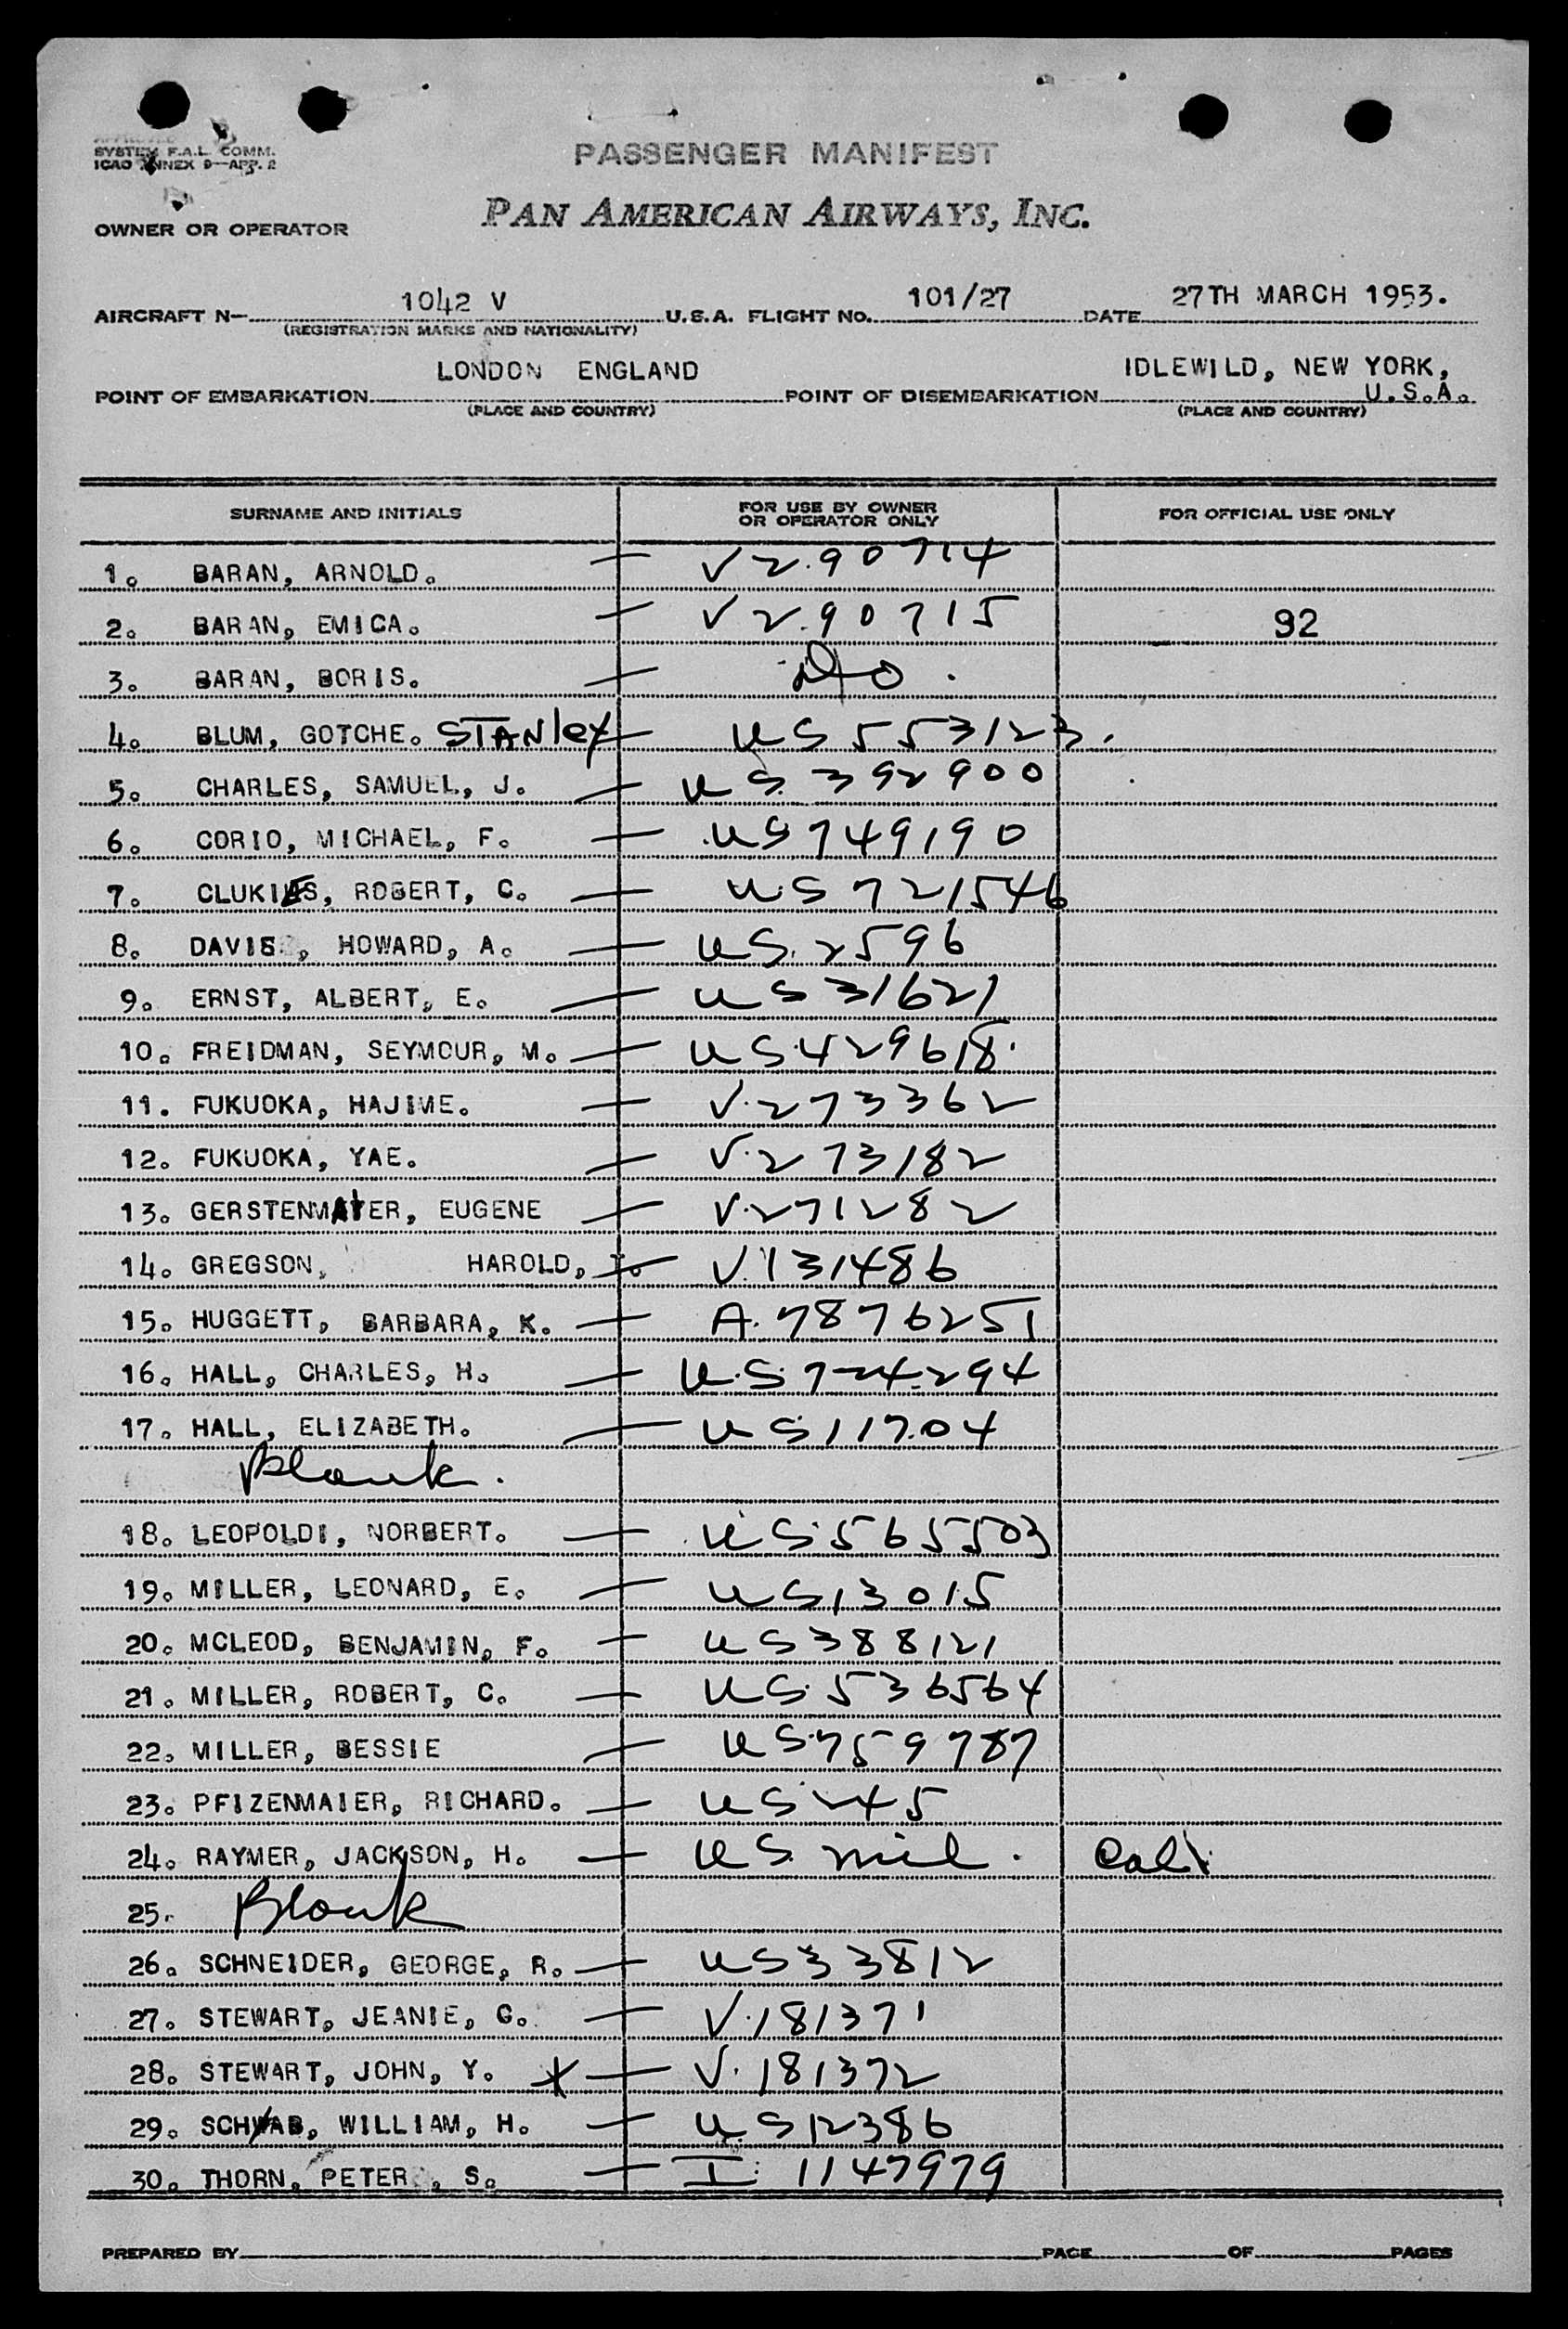 SYSTEM F.A.L. COMM.
ICAO ANNEX 9—APP. 2
PASSENGER MANIFEST
OWNER OR OPERATOR PAN AMERICAN AIRWAYS, INC.
AIRCRAFT N— 1042 V U.S.A. FLIGHT No. 101/27 DATE 27TH MARCH 1953.
(REGISTRATION MARKS AND NATIONALITY)
LONDON ENGLAND IDLEWILD, NEW YORK,
POINT OF EMBARKATION POINT OF DISEMBARKATION U.S.A.
(PLACE AND COUNTRY) (PLACE AND COUNTRY)
SURNAME AND INITIALS FOR USE BY OWNER OR OPERATOR ONLY FOR OFFICIAL USE ONLY
1. BARAN, ARNOLD. — V 2.90714
2. BARAN, EMICA. — V 2.90715 92
3. BARAN, BORIS. — Do.
4. BLUM, GOTCHE. STANley — US 553123.
5. CHARLES, SAMUEL, J. — US. 392900
6. CORIO, MICHAEL, F. — US 749190
7. CLUKIES, ROBERT, C. — US 721546
8. DAVIS, HOWARD, A. — US. 2596
9. ERNST, ALBERT, E. — US 31621
10. FREIDMAN, SEYMOUR, M. — US.429618.
11. FUKUOKA, HAJIME. — V.273362
12. FUKUOKA, YAE. — V.273182
13. GERSTENMAIER, EUGENE — V.271282
14. GREGSON, HAROLD, — V.131486
15. HUGGETT, BARBARA, K. — A.7876251
16. HALL, CHARLES, H. — U.S.724294
17. HALL, ELIZABETH. — US 11704
Blank.
18. LEOPOLDI, NORBERT. — US.565503
19. MILLER, LEONARD, E. — US 13015
20. MCLEOD, BENJAMIN, F. — US 388121
21. MILLER, ROBERT, C. — US.536564
22. MILLER, BESSIE — US.759787
23. PFIZENMAIER, RICHARD. — US 245
24. RAYMER, JACKSON, H. — US. mil.
25. Blank
26. SCHNEIDER, GEORGE, R. — US 33812
27. STEWART, JEANIE, G. — V.181371
28. STEWART, JOHN, Y. — V.181372
29. SCHWAB, WILLIAM, H. — U.S 12386
30. THORN, PETER, S. — I: 1147979
PREPARED BY PAGE OF PAGES